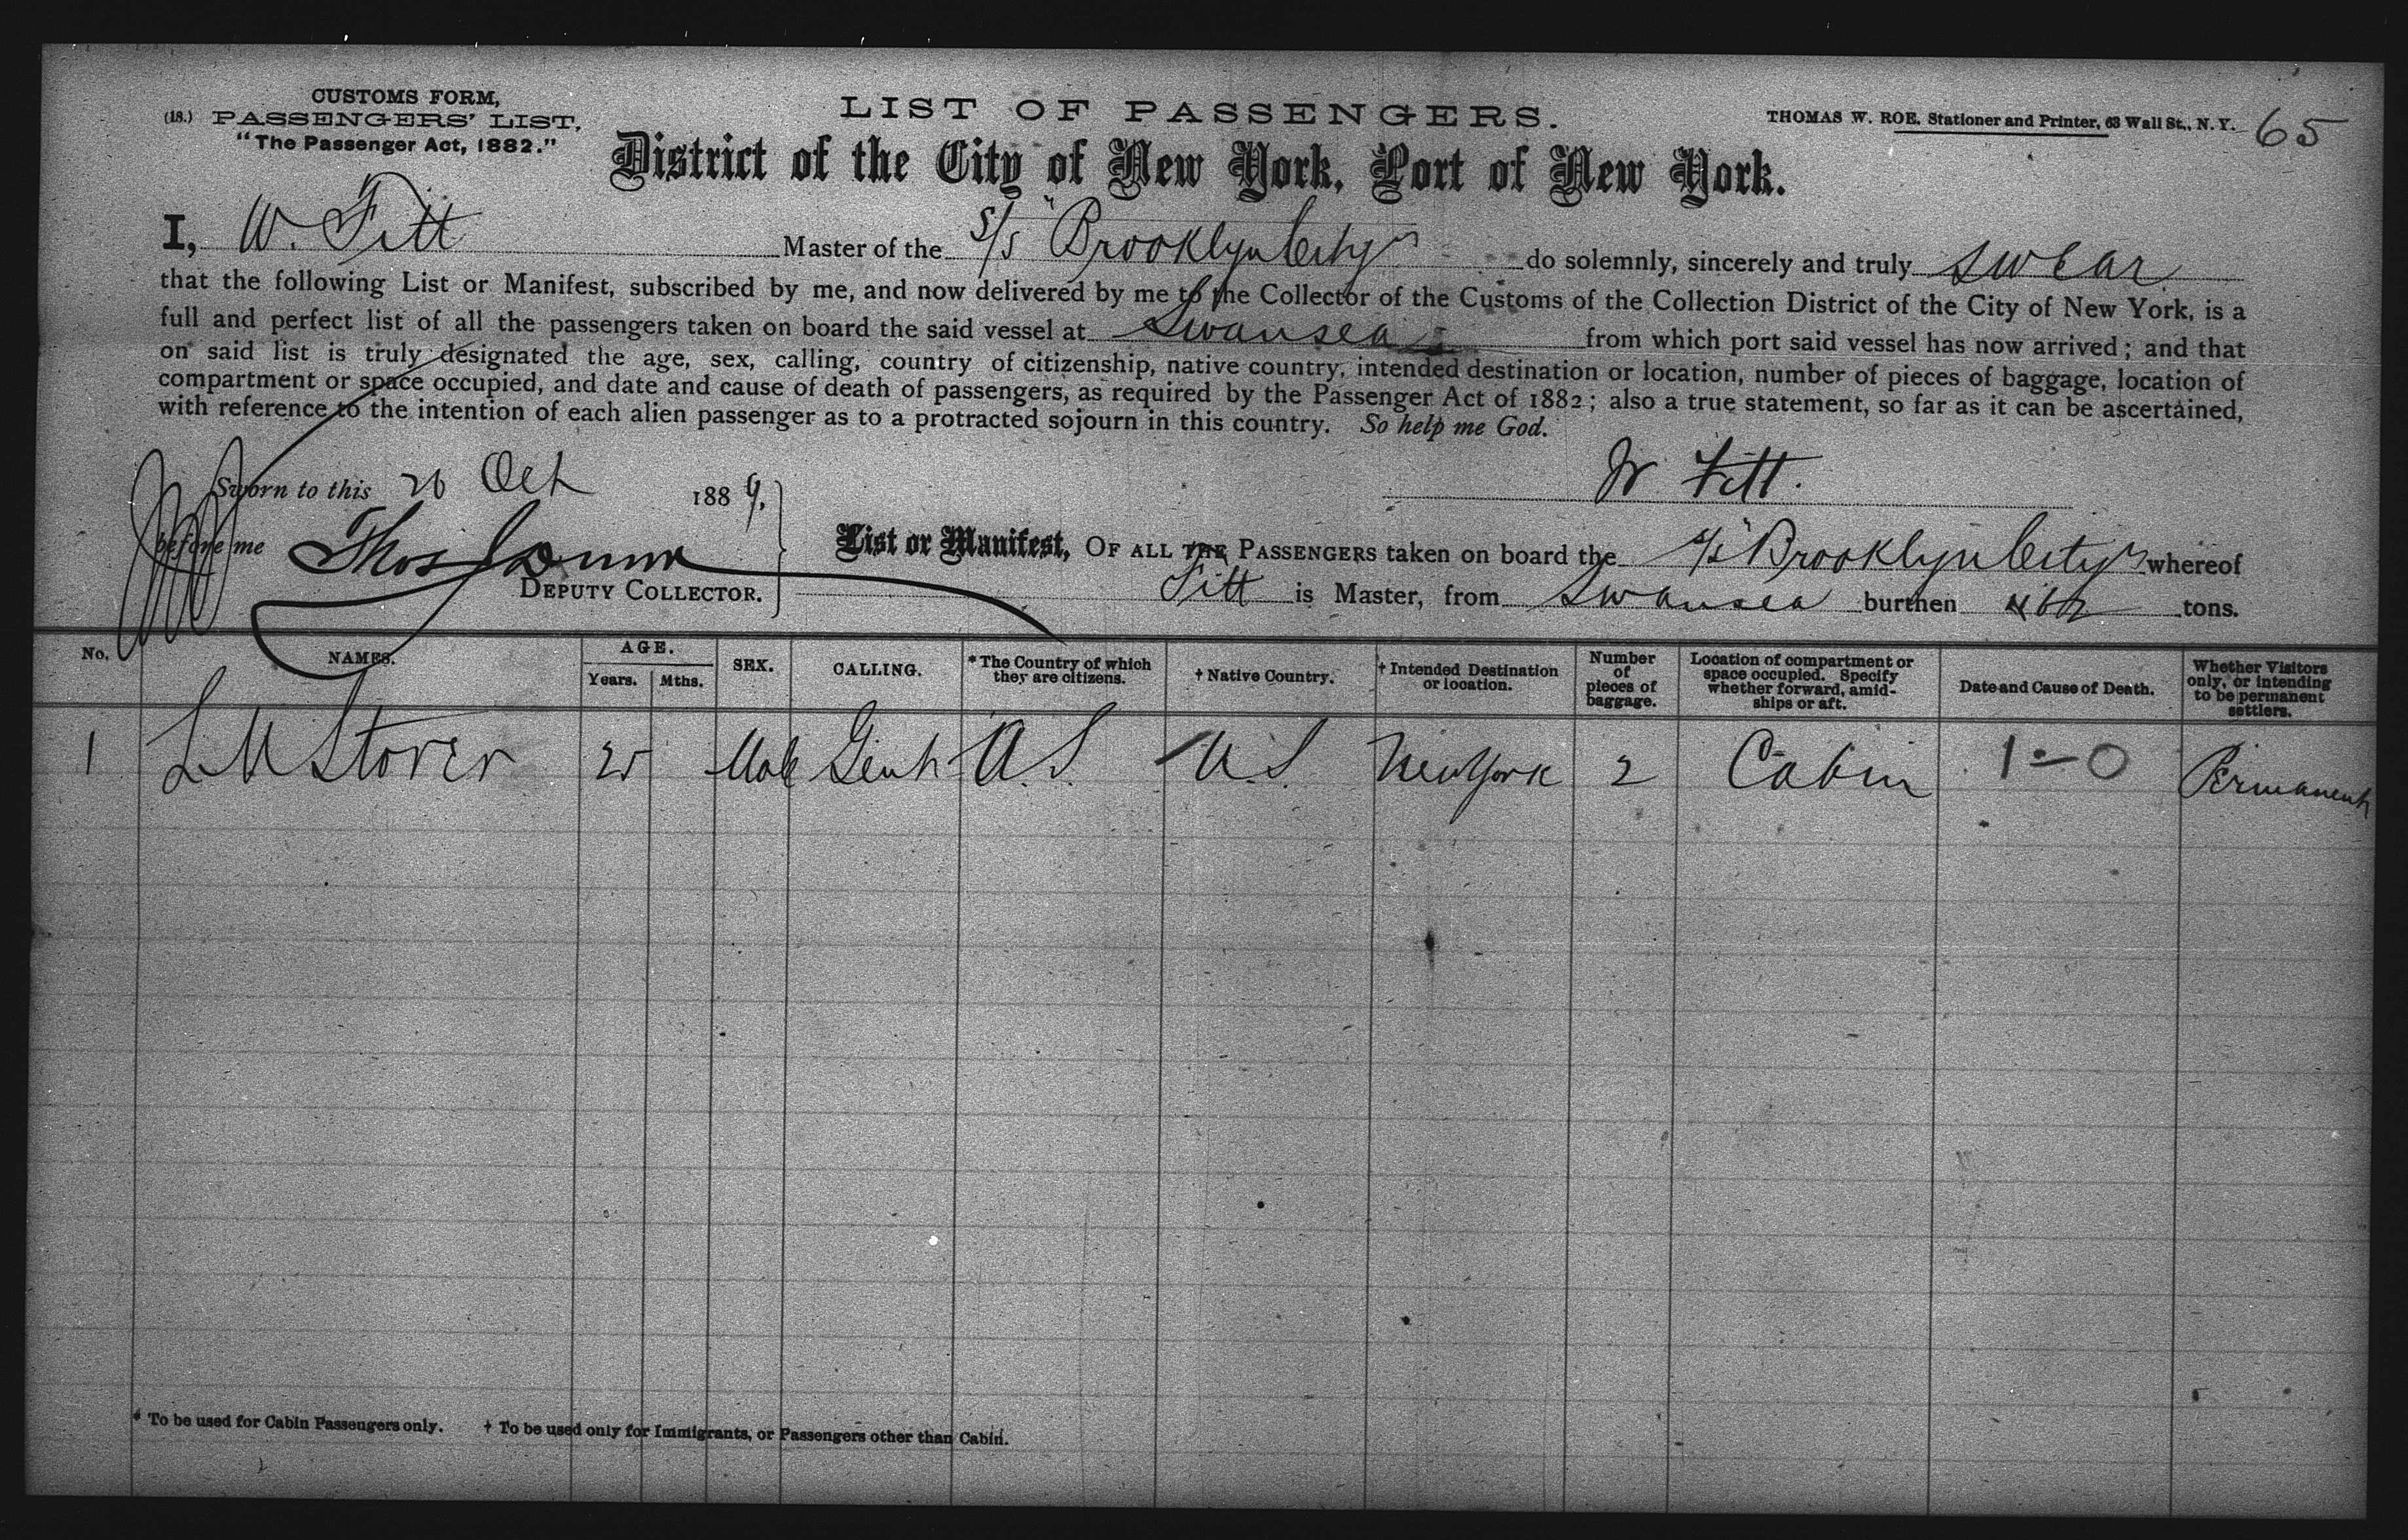 CUSTOMS FORM,
(18.) PASSENGERS' LIST,
"The Passenger Act, 1882."
LIST OF PASSENGERS.
THOMAS W. ROE, Stationer and Printer, 63 Wall St., N. Y.
65
District of the City of New York, Port of New York.
I, W. Fitt Master of the S/S "Brooklyn City" do solemnly, sincerely and truly swear
that the following List or Manifest, subscribed by me, and now delivered by me to the Collector of the Customs of the Collection District of the City of New York, is a
full and perfect list of all the passengers taken on board the said vessel at Swansea from which port said vessel has now arrived; and that
on said list is truly designated the age, sex, calling, country of citizenship, native country, intended destination or location, number of pieces of baggage, location of
compartment or space occupied, and date and cause of death of passengers, as required by the Passenger Act of 1882; also a true statement, so far as it can be ascertained,
with reference to the intention of each alien passenger as to a protracted sojourn in this country. So help me God.
Sworn to this Oct 1889.
W Fitt.
before me Thos
DEPUTY COLLECTOR.
List or Manifest, OF ALL THE PASSENGERS taken on board the S/S "Brooklyn City" whereof
Fitt is Master, from Swansea burthen tons.
No. NAMES. AGE. Years. Mths. SEX. CALLING. * The Country of which they are citizens. † Native Country. † Intended Destination or location. Number of pieces of baggage. Location of compartment or space occupied. Specify whether forward, amidships or aft. Date and Cause of Death. Whether Visitors only, or intending to be permanent settlers.
1 L M Stover 25 Male Gent U.S. U.S. New York 2 Cabin 1-0 Permanent
* To be used for Cabin Passengers only. † To be used only for Immigrants, or Passengers other than Cabin.